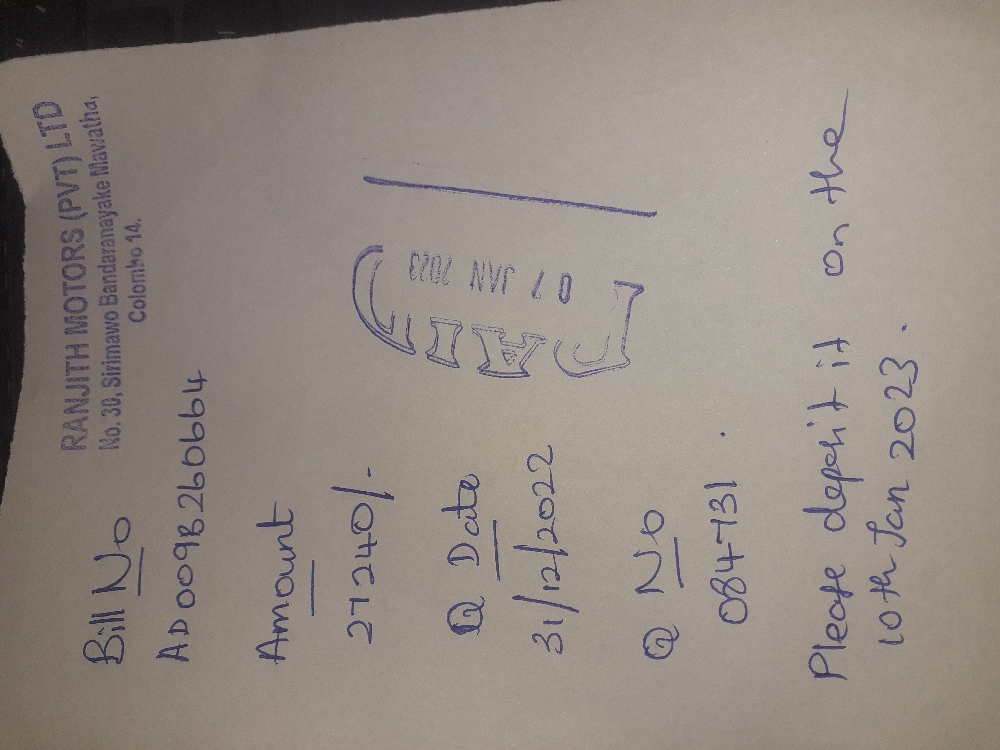 RANJITH MOTORS (PVT) LTD
No. 30, Sirimawo Bandaranayake Mawatha,
Colombo 14.
Bill No
AD009B260664
Amount
27240/-
Q Date
31/12/2022
Q No
084731.
PAID
07 JAN 2023
Please deposit it on the
10th Jan 2023.